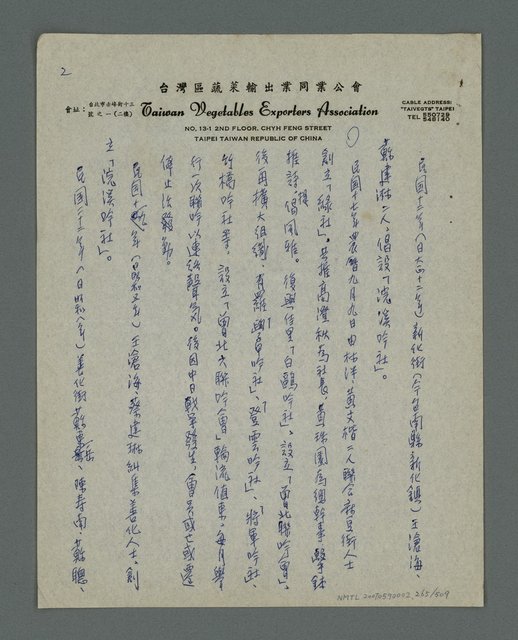 2
台灣區蔬菜輸出業同業公會
會址：台北市赤峰街十三號之一(二樓)
Taiwan Vegetables Exporters Association
NO, 13-1 2ND FLOOR. CHYH FENG STREET
TAIPEI TAIWAN REPUBLIC OF CHINA
CABLE ADDRESS:
"TAIVEGTS" TAIPEI
TEL
民國十二年（日大正十二年）新化街（今台南縣新化鎮）王滄海、
蘇建琳二人，倡設「浣溪吟社」。
民國十七年農曆九月九日由林泮、黃文楷二人聯合新里街人士
創立「綠社」。共推高澄秋為社長，黃珠園為總幹事擊鉢
推詩，揚風雅。復與佳里「白鷗吟社」、設立「曾北聯吟會」，
後再擴大組織，有羅「學甲吟社」、「登雲吟社」、「將軍吟社」、
竹橋吟社等，設立「曾北六聯吟會」輪流值東，每月舉
行一次聯吟以連絡聲氣。後因中日戰爭發生，會員或亡或遷
停止活動。
民國十 年（日昭和 年）王滄海、蔡建琳糾集善化人士，創
立「浣溪吟社」。
民國二三年（日昭和八年）善化街蘇東岳、陳壽南、蘇聰、
NMTL 20090590002 265/509